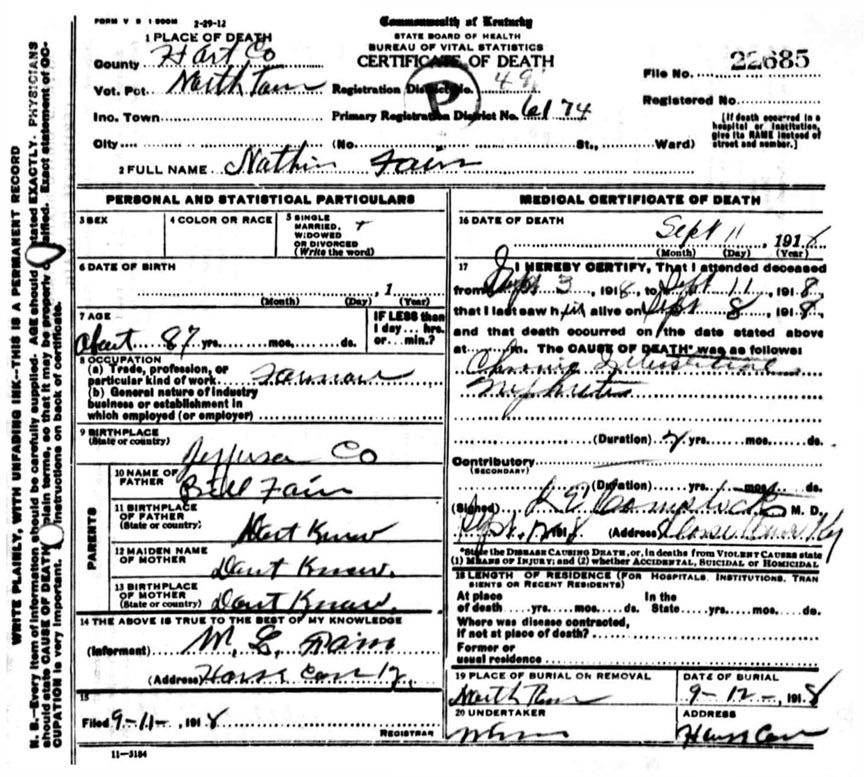 FORM V S 1 500M 2-29-12
Commonwealth of Kentucky
STATE BOARD OF HEALTH
BUREAU OF VITAL STATISTICS
CERTIFICATE OF DEATH
1 PLACE OF DEATH
County Hart Co
Vot. Pct. North Town
Registration District No. 49
File No. 22685
Inc. Town
Primary Registration District No. 6174
Registered No.
P
City (No. St., Ward)
[If death occurred in a
hospital or institution,
give its NAME instead of
street and number.]
2 FULL NAME Nathin Fain
PERSONAL AND STATISTICAL PARTICULARS
3 SEX
4 COLOR OR RACE
5 SINGLE
MARRIED,
WIDOWED
OR DIVORCED
(Write the word)
6 DATE OF BIRTH
, 1
(Month) (Day) (Year)
7 AGE
about 87 yrs. mos. ds.
IF LESS than
1 day... hrs.
or... min.?
8 OCCUPATION
(a) Trade, profession, or
particular kind of work
(b) General nature of industry
business or establishment in
which employed (or employer)
9 BIRTHPLACE
(State or country)
Jefferson Co
PARENTS
10 NAME OF
FATHER
Bill Fain
11 BIRTHPLACE
OF FATHER
(State or country)
Dont Know
12 MAIDEN NAME
OF MOTHER
Dont Know.
13 BIRTHPLACE
OF MOTHER
(State or country)
Dont Know
14 THE ABOVE IS TRUE TO THE BEST OF MY KNOWLEDGE
(Informant) M. L. Fain
(Address) Horse Cave Ky.
15
Filed 9-11-, 1918
REGISTRAR
11-3184
MEDICAL CERTIFICATE OF DEATH
16 DATE OF DEATH
Sept 11, 1918
(Month) (Day) (Year)
17 I HEREBY CERTIFY, That I attended deceased
from Sept 3, 1918, to Sept 11, 1918,
that I last saw him alive on Sept 8, 1918,
and that death occurred on the date stated above
at m. The CAUSE OF DEATH* was as follows:
Chronic Interstitial
Nephritis
(Duration) 2 yrs. mos. ds.
Contributory
(SECONDARY)
(Duration) yrs. mos. ds.
(Signed) M. D.
Sept. 12 1918 (Address) Horse Cave Ky
*State the DISEASE CAUSING DEATH, or, in deaths from VIOLENT CAUSES state
(1) MEANS OF INJURY; and (2) whether ACCIDENTAL, SUICIDAL OR HOMICIDAL
18 LENGTH OF RESIDENCE (FOR HOSPITALS, INSTITUTIONS, TRAN
SIENTS OR RECENT RESIDENTS)
At place In the
of death yrs. mos. ds. State yrs. mos. ds.
Where was disease contracted,
if not at place of death?
Former or
usual residence
19 PLACE OF BURIAL OR REMOVAL
North Town
DATE OF BURIAL
9-12-, 1918
20 UNDERTAKER
ADDRESS
Horse Cave
WRITE PLAINLY, WITH UNFADING INK—THIS IS A PERMANENT RECORD
N. B.—Every item of information should be carefully supplied. AGE should stated EXACTLY. PHYSICIANS
should state CAUSE OF DEATH plain terms, so that it may be properly Exact statement of OC-
CUPATION is very important. instructions on back of certificate.